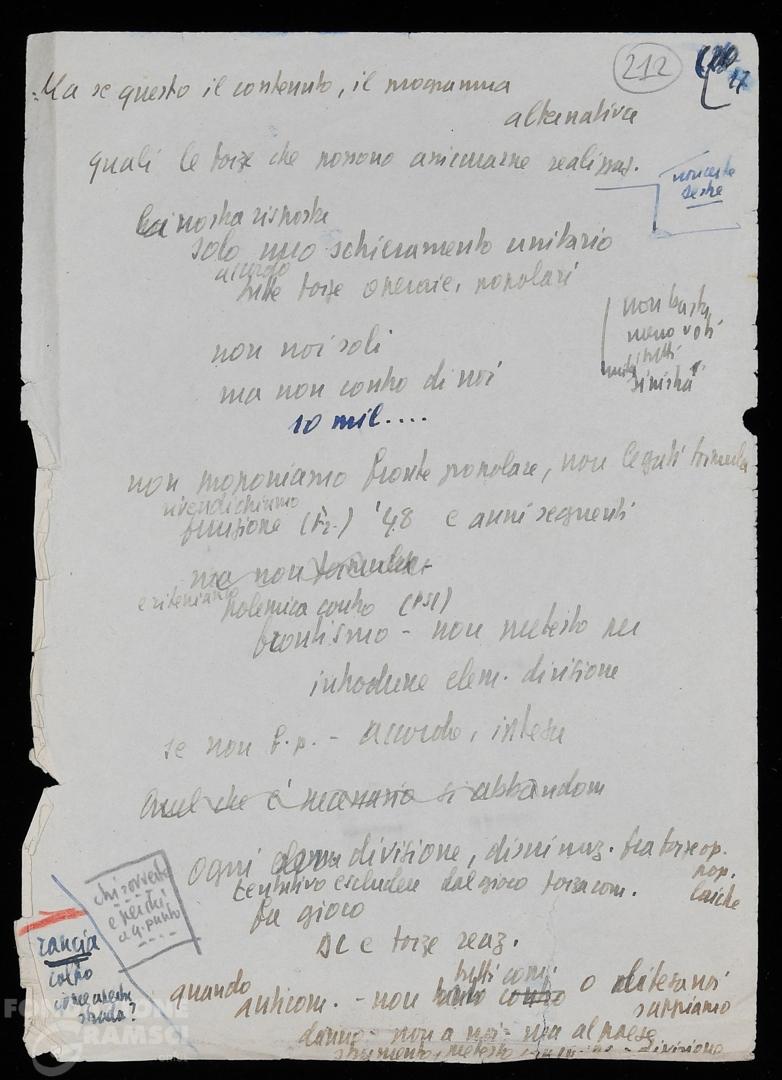 212
17
Ma se questo il contenuto, il programma
alternativa
quali le forze che possono assicurarne realizzaz.
non certe
destre
la nostra risposta
solo uno schieramento unitario
accordo
tutte forze operaie, popolari
non basta
meno voti
tutti
unità sinistra
non noi soli
ma non contro di noi
10 mil....
non proponiamo fronte popolare, non legati formula
rivendichiamo
funzione (Fr.) '48 e anni seguenti
ma non formula
e riteniamo
polemica contro (PSI)
frontismo - non pretesto per
introdurre elem. divisione
se non f.p. - accordo, intesa
Quel che è necessario si abbandoni
ogni divisione, discriminaz. fra forze op.
pop.
laiche
tentativo escludere dal gioco forza com.
fa gioco
DC e forze reaz.
chi rovescia
e perché
a q. punto
Francia
colpo
come questa
strada?
quando
tutti com.
anticom. - non contro o
sappiamo
danno - non a noi - ma al paese
strumento, pretesto - divisione
FONDAZIONE
GRAMSCI